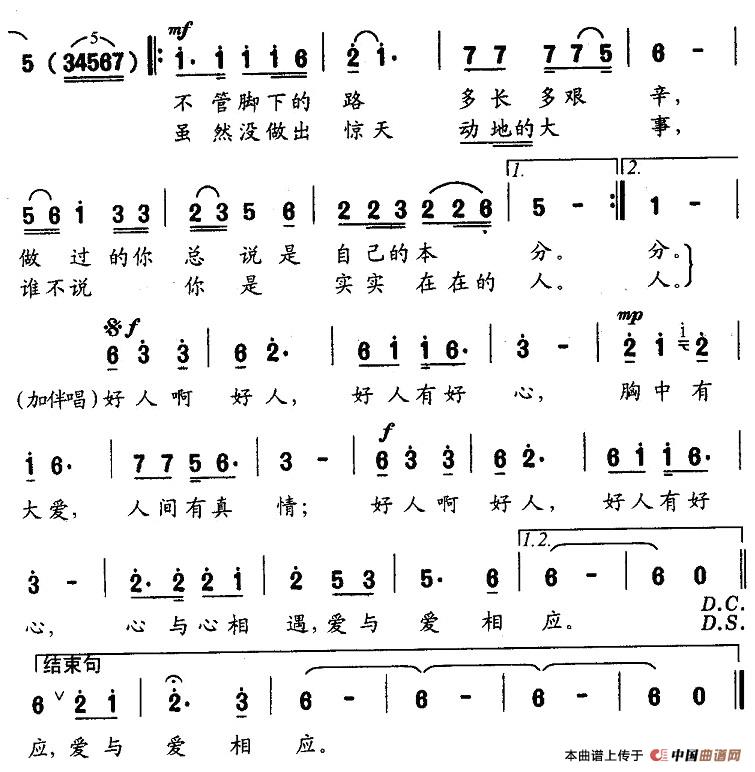 mf
5 ( 34567 ) 1· 1 1 1 6 | 2 1· | 7 7 7 7 5 | 6 - |
不管脚下的路 多长多艰辛,
虽然没做出惊天动地的大事,
1. 2.
5 6 1 3 3 | 2 3 5 6 | 2 2 3 2 2 6 | 5 - :| 1 - |
做过的你总说是自己的本分。分。
谁不说你是实实在在的人。人。
f mp
6 3 3 | 6 2· | 6 1 1 6· | 3 - | 2 1 2 |
(加伴唱)好人啊好人,好人有好心,胸中有
f
1 6· | 7 7 5 6· | 3 - | 6 3 3 | 6 2· | 6 1 1 6· |
大爱,人间有真情;好人啊好人,好人有好
1.2.
3 - | 2· 2 2 1 | 2 5 3 | 5· 6 | 6 - | 6 0 ‖
D.C.
心,心与心相遇,爱与爱相应。 D.S.
结束句
6 ∨ 2 1 | 2· 3 | 6 - | 6 - | 6 - | 6 0 ‖
应,爱与爱相应。
本曲谱上传于 中国曲谱网